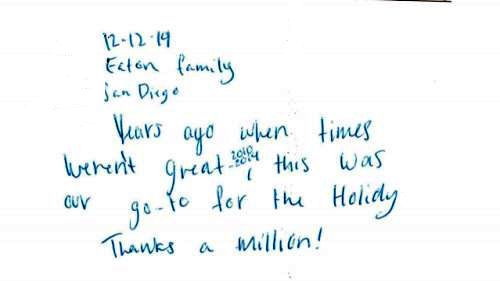 12-12-19
Eaton family
San Diego
Years ago when times
weren't great 2010-2014, this was
our go-to for the Holidy
Thanks a million!